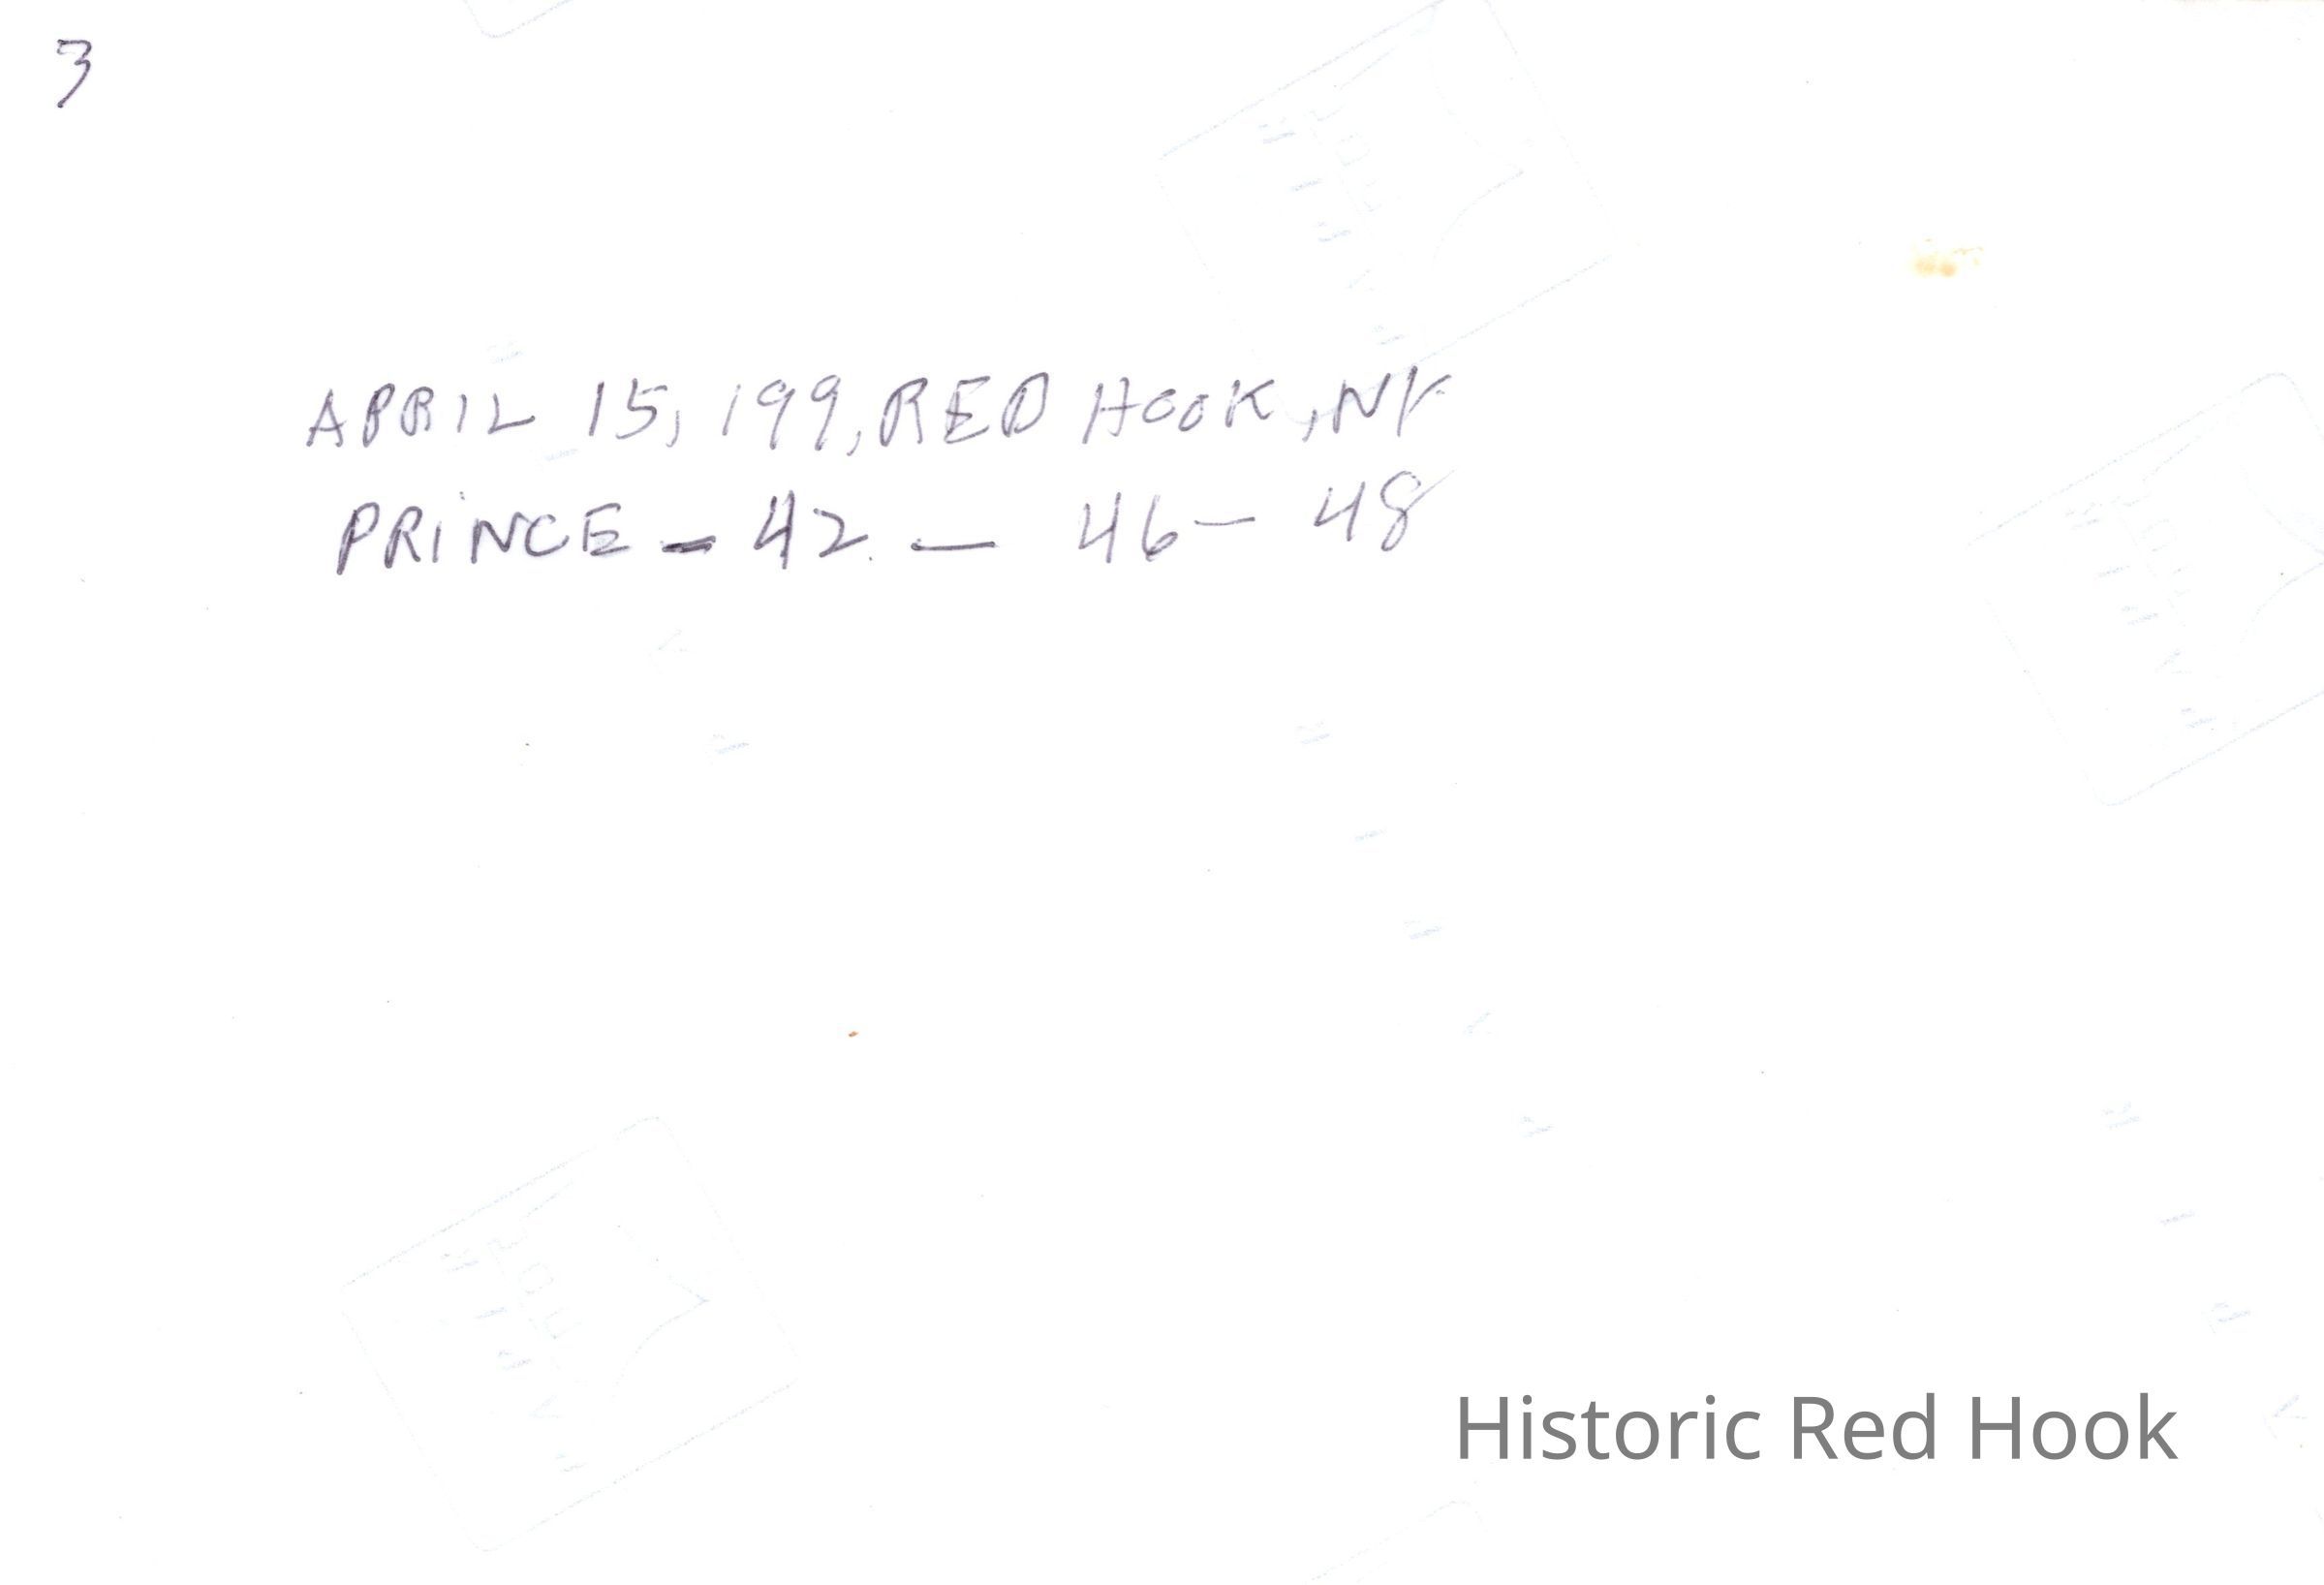 3
APRIL 15, 199, RED HOOK, NY
PRINCE - 42. — 46 — 48
Historic Red Hook